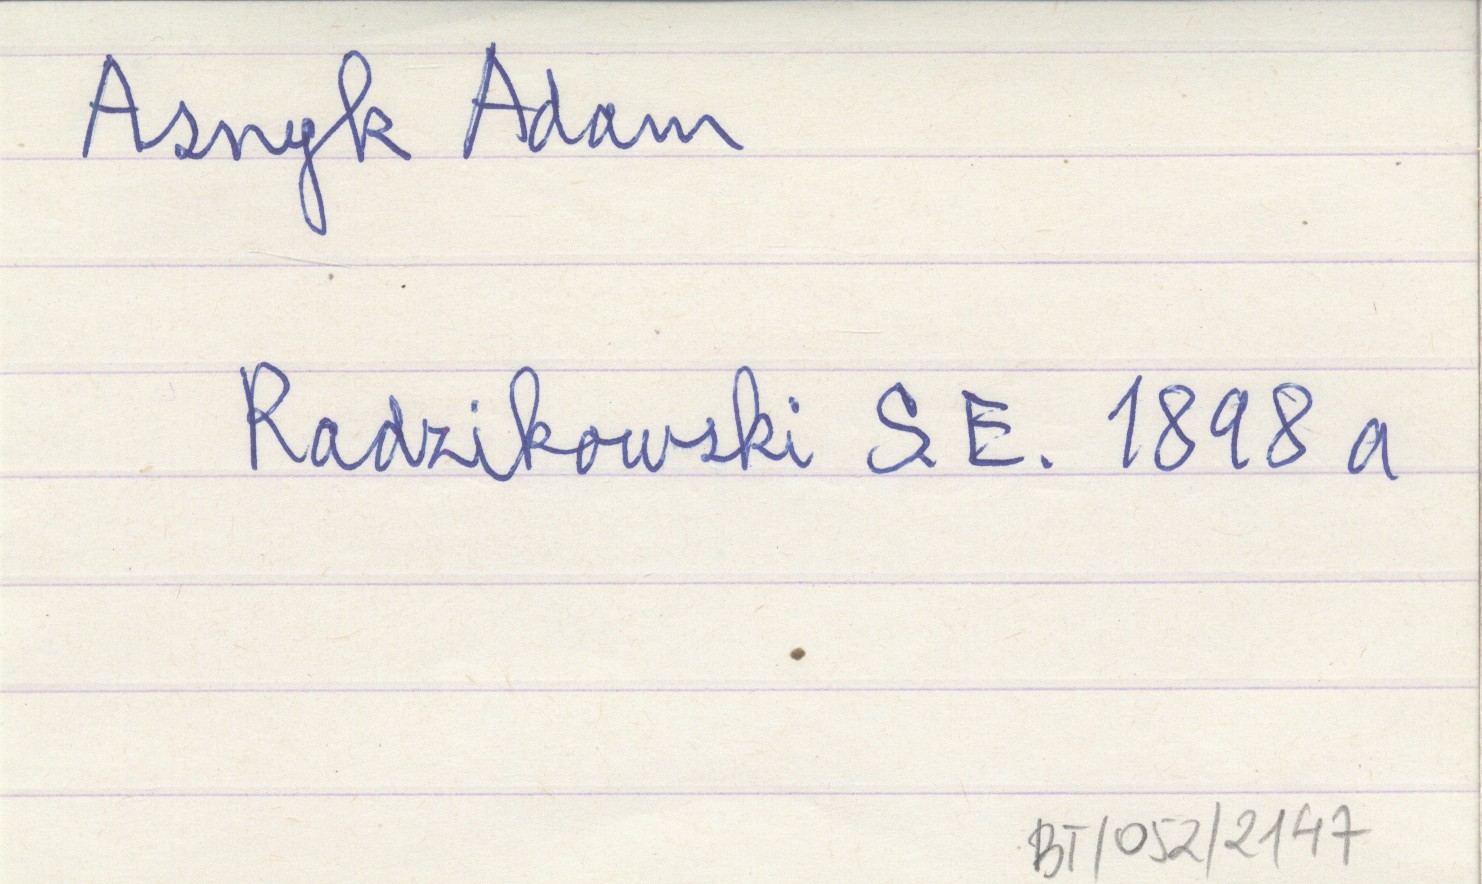 Asnyk Adam
Radzikowski S.E. 1898 a
BT/052/2147